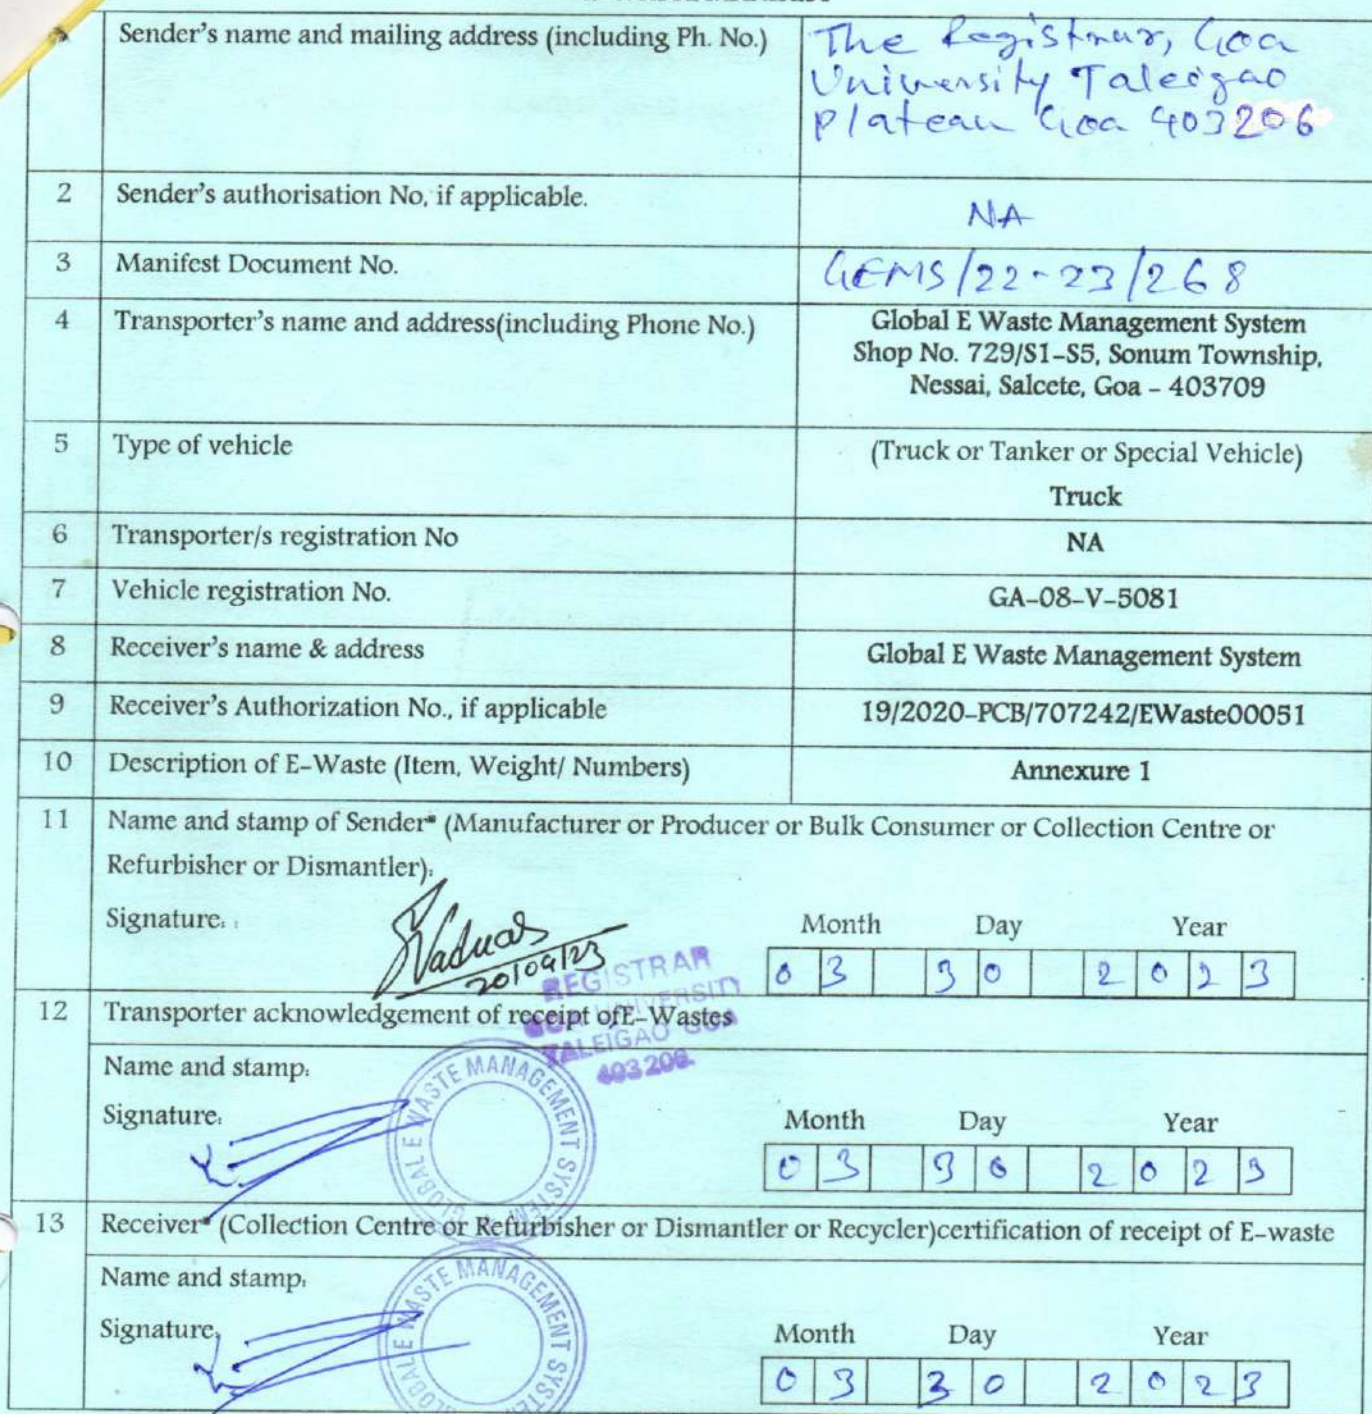 Sender's name and mailing address (including Ph. No.)
The Registrar, Goa
University Taleigao
Plateau Goa 403206
2 Sender's authorisation No, if applicable. NA
3 Manifest Document No. GEMS/22-23/268
4 Transporter's name and address(including Phone No.)
Global E Waste Management System
Shop No. 729/S1-S5, Sonum Township,
Nessai, Salcete, Goa - 403709
5 Type of vehicle (Truck or Tanker or Special Vehicle)
Truck
6 Transporter/s registration No NA
7 Vehicle registration No. GA-08-V-5081
8 Receiver's name & address Global E Waste Management System
9 Receiver's Authorization No., if applicable 19/2020-PCB/707242/EWaste00051
10 Description of E-Waste (Item, Weight/ Numbers) Annexure 1
11 Name and stamp of Sender* (Manufacturer or Producer or Bulk Consumer or Collection Centre or
Refurbisher or Dismantler):
Signature: Month Day Year
20/04/23
03 30 2023
REGISTRAR
GOA UNIVERSITY
TALEIGAO GOA
403206.
12 Transporter acknowledgement of receipt ofE-Wastes
Name and stamp:
GLOBAL E WASTE MANAGEMENT SYSTEM
Signature: Month Day Year
03 30 2023
13 Receiver* (Collection Centre or Refurbisher or Dismantler or Recycler)certification of receipt of E-waste
Name and stamp:
GLOBAL E WASTE MANAGEMENT SYSTEM
Signature: Month Day Year
03 30 2023